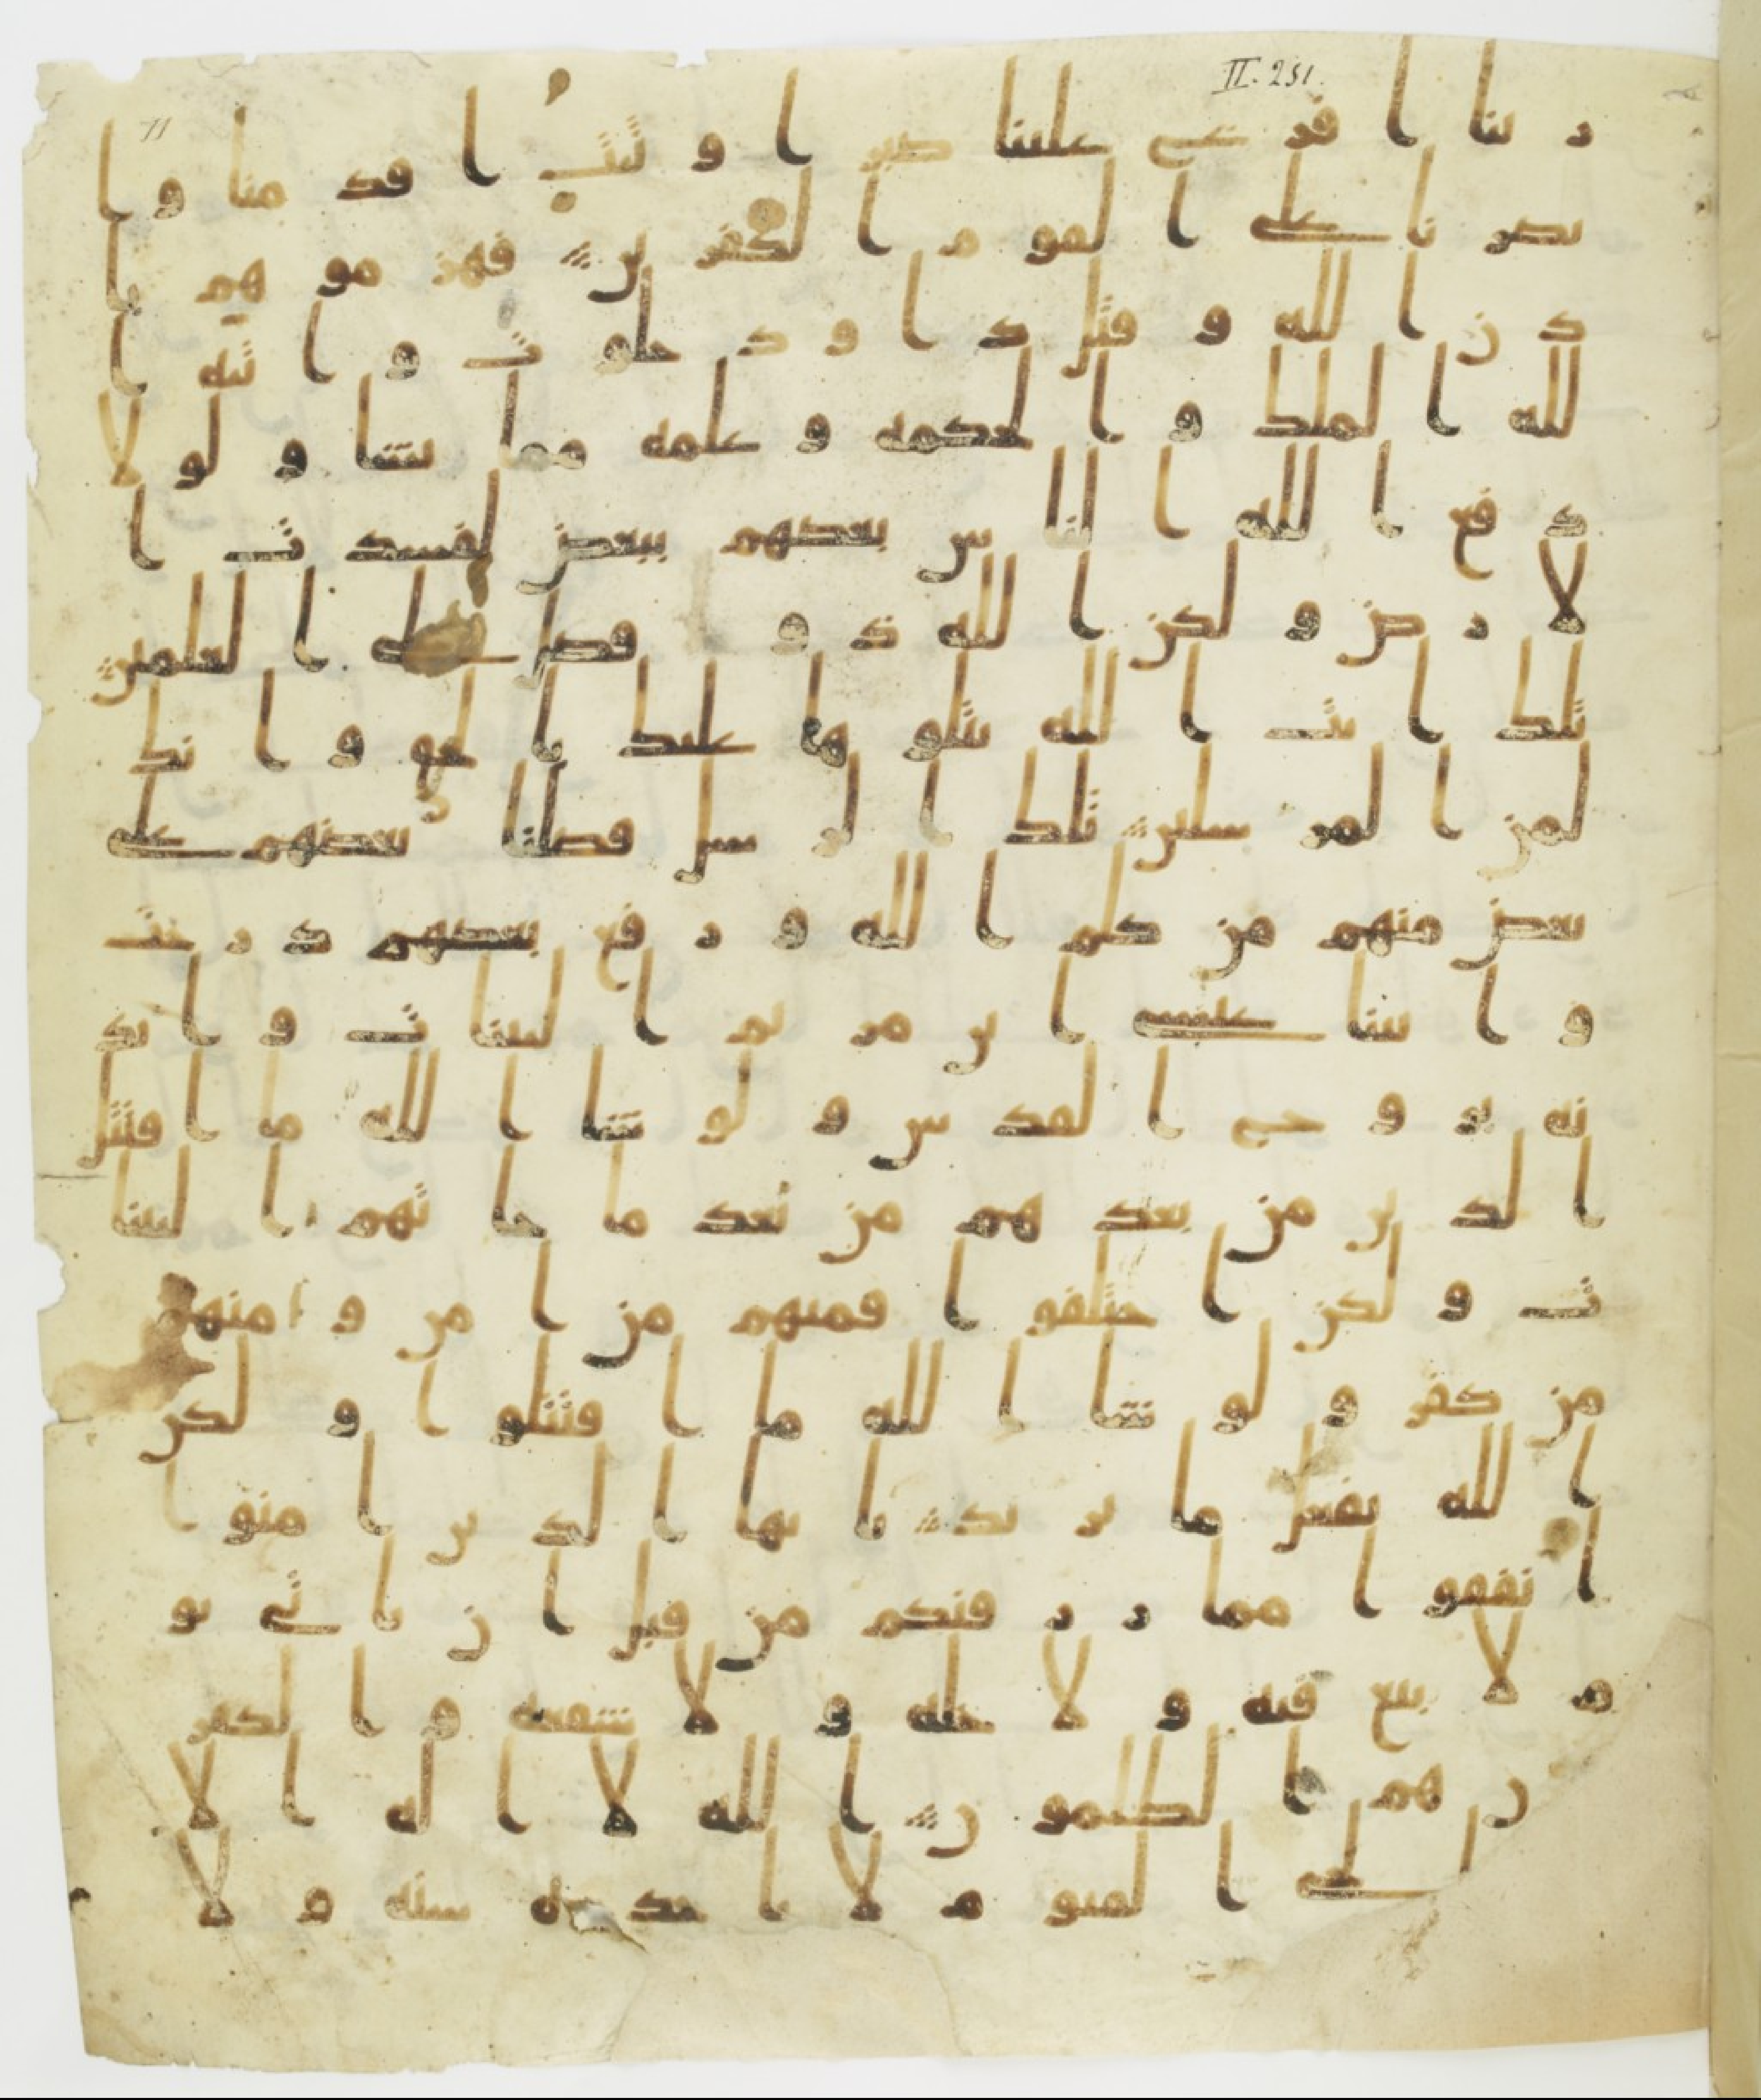 ربنا افرغ علينا صبرا و ثبت اقدامنا وا
نصرنا على القوم الكفرين فهزموهم با
ذن الله وقتل داود جلوت واتيه ا
لله الملك والحكمه وعلمه مما يشا ولولا
دفع الله الناس بعضهم ببعض لفسدت ا
لارض ولكن الله ذو فضل على العلمين
تلك ايت الله نتلوها عليك بالحق وانك
لمن المرسلين تلك الرسل فضلنا بعضهم على
بعض منهم من كلم الله ورفع بعضهم درجت
واتينا عيسى ابن مريم البينات وايد
نه بروح القدس ولو شا الله ما اقتتل
الذين من بعدهم من بعد ما جاتهم البينا
ت ولكن اختلفوا فمنهم من امن ومنهم
من كفر ولو شا الله ما اقتتلوا ولكن
الله يفعل ما يريد يايها الذين امنوا
انفقوا مما رزقنكم من قبل ان ياتي يو
م لا بيع فيه ولا خله ولا شفعه والكفرو
ن هم الظلمون الله لا اله الا
الحي القيوم لا تاخذه سنه ولا